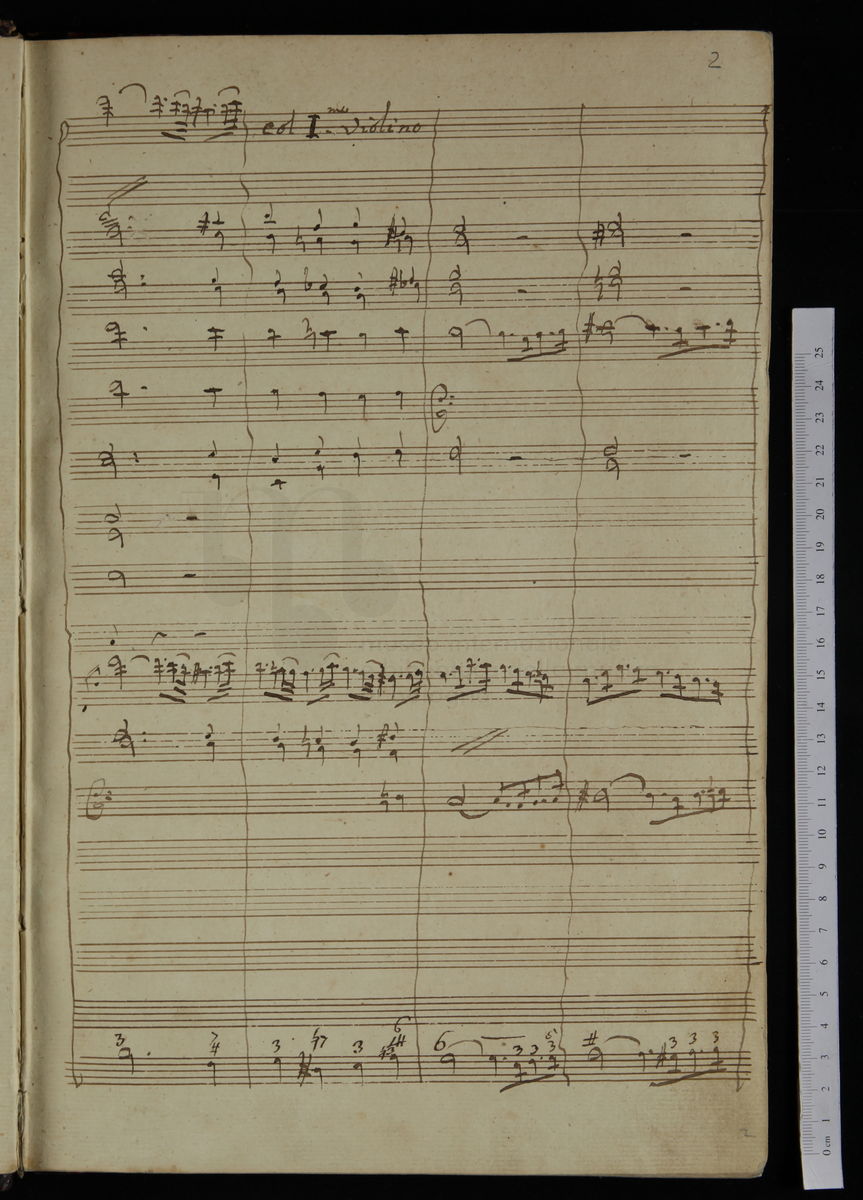 2
col I.mo Violino
3 7 4 3 3 6
6 3 3 # 3 3 3
25
24
23
22
21
20
19
18
17
16
15
14
13
12
11
10
9
8
7
6
5
4
3
2
1
0 cm